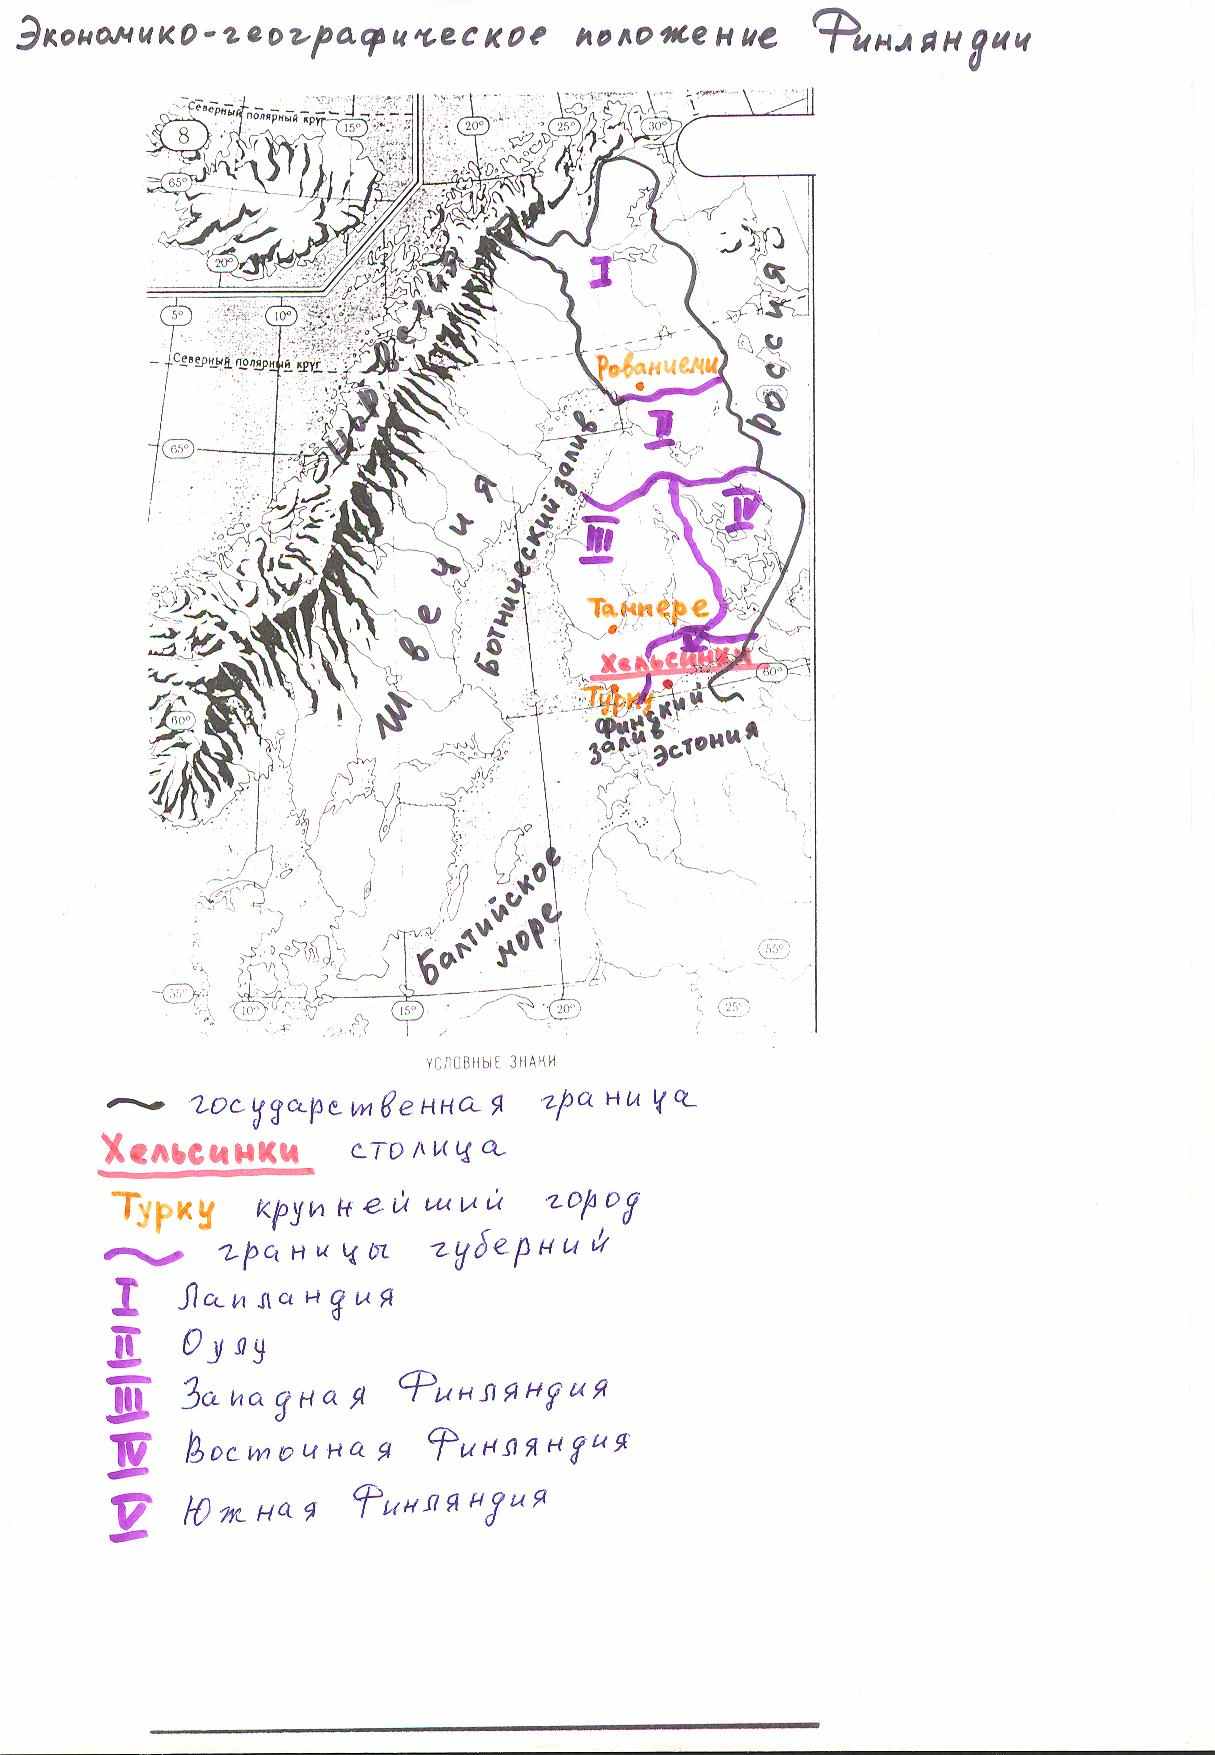 Экономико-географическое положение Финляндии
Северный полярный круг
15°
20°
25°
30°
8
65°
20°
5°
10°
Северный полярный круг
65°
60°
Норвегия
Швеция
Россия
I
Рованиеми
II
Ботнический залив
III
IV
Тампере
V
Хельсинки
60°
Турку
Финский
залив
Эстония
Балтийское
море
55°
55°
10°
15°
20°
25°
УСЛОВНЫЕ ЗНАКИ
государственная граница
Хельсинки столица
Турку крупнейший город
границы губерний
I Лапландия
II Оулу
III Западная Финляндия
IV Восточная Финляндия
V Южная Финляндия